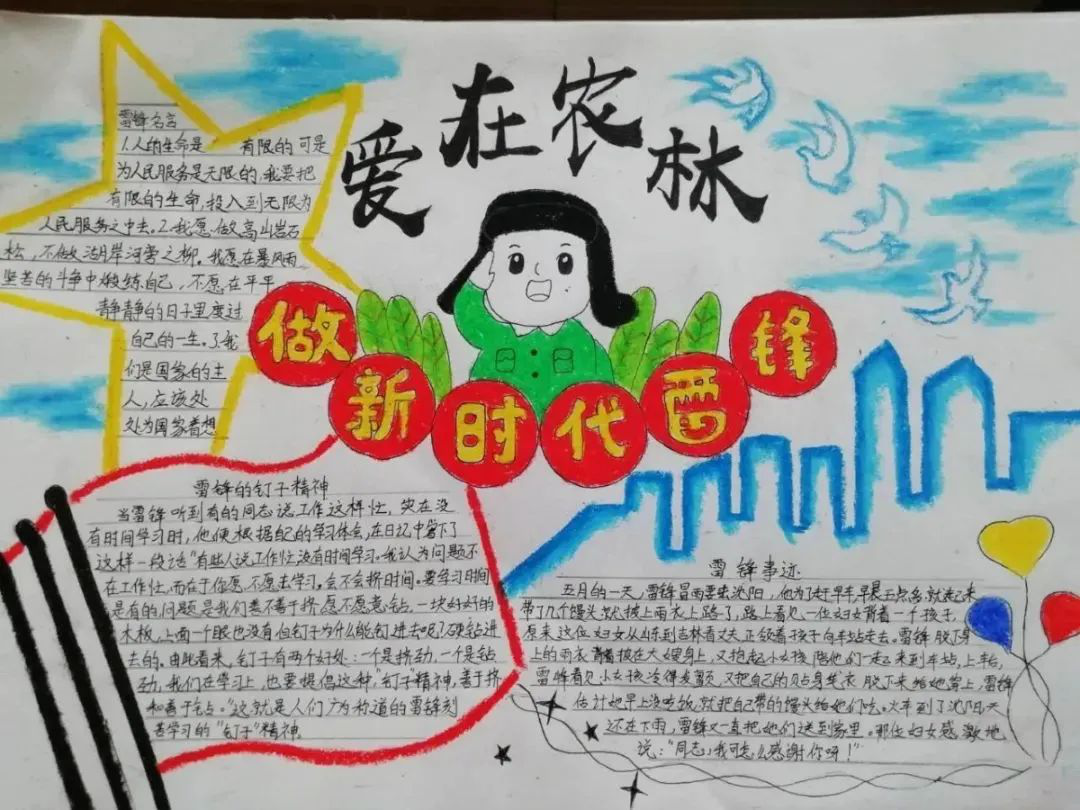 爱在农林
做新时代雷锋
雷锋名言
1.人的生命是 有限的 可是
为人民服务是无限的,我要把
有限的生命,投入到无限为
人民服务之中去。2.我愿做高山岩石
松,不做湖岸河旁之柳。我愿在暴风雨
坚苦的斗争中煅练自己,不愿在平平
静静的日子里度过
自己的一生。3我
们是国家的主
人,应该处
处为国家着想
雷锋的钉子精神
当雷锋听到有的同志说工作这样忙,实在没
有时间学习时,他便根据自己的学习体会,在日记中写下
这样一段话"有些人说工作忙没有时间学习。我认为问题不
在工作忙,而在于你愿不愿去学习,会不会挤时间。要学习时间
是有的,问题是我们善不善于挤,愿不愿意钻,一块好好的
木板,上面一个眼也没有但钉子为什么能钉进去呢?硬钻进
去的。由此看来,钉子有两个好处:一个是挤劲,一个是钻
劲,我们在学习上,也要提倡这种,钉子精神,善于挤
和善于钻。"这就是人们广为称道的雷锋刻
苦学习的"钉子"精神
雷锋事迹
五月的一天,雷锋冒雨要去沈阳,他为了赶早车,早晨五点多就起来
带了几个馒头就披上雨衣上路了,路上看见一位妇女背着一个孩子,
原来这位妇女从山东到吉林看丈夫正领着孩子向车站走去。雷锋脱下身
上的雨衣 披在大嫂身上,又抱起小女孩陪他们一起来到车站,上车后,
雷锋看见小女孩冷得发颤又把自己的贴身线衣脱下来给她穿上,雷锋
估计她早上没吃饭,就把自己带的馒头给她们吃。火车到了沈阳天
还在下雨,雷锋又一直把她们送到家里。那位妇女感激地
说:"同志,我可怎么感谢你呀!"